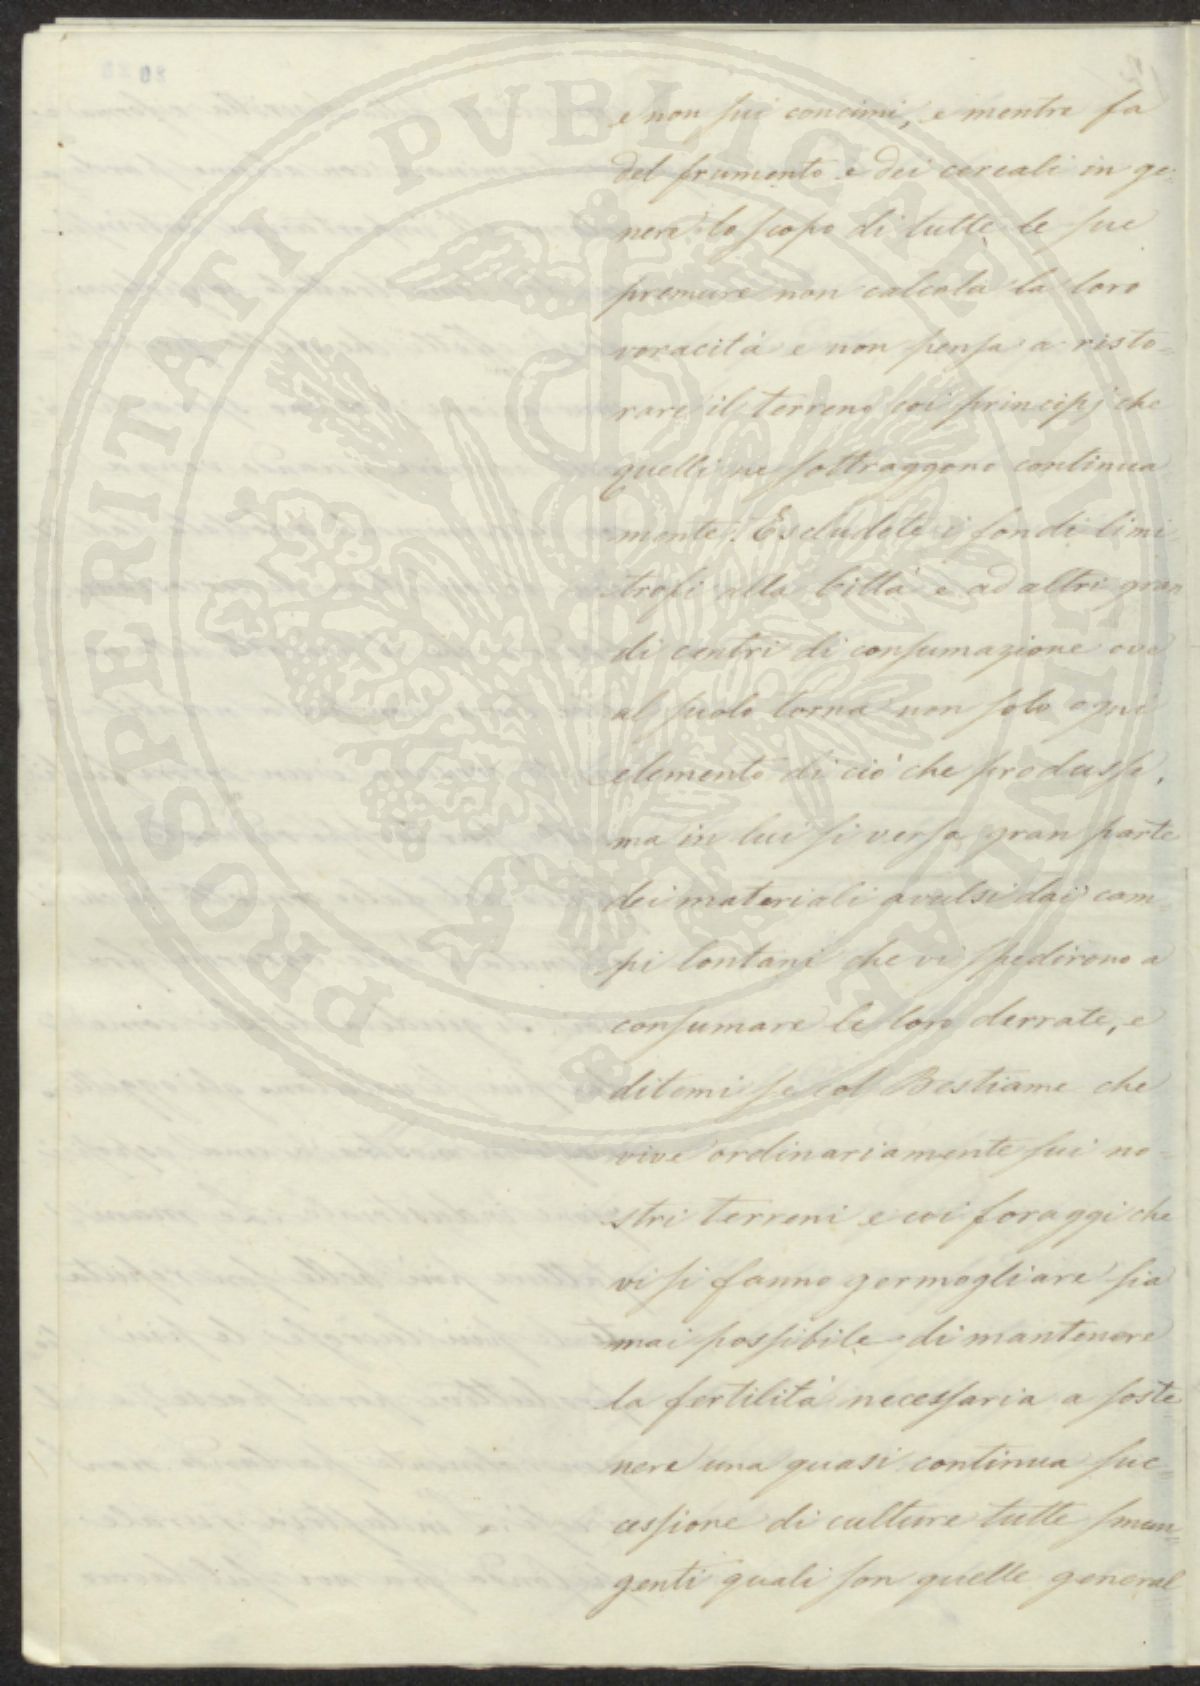 PROSPERITATI PVBLICAE AVGENDAE
e non sui concimi, e mentre fa
del frumento e dei cereali in ge=
nere lo scopo di tutte le sue
premure non calcola la loro
voracità e non pensa a risto=
rare il terreno coi principj che
quelli ne sottraggono continua
mente. Escludete i fondi limi
trofi alla Città e ad altri gran
di centri di consumazione ove
al suolo torna non solo ogni
elemento di ciò che produsse,
ma in lui si versa gran parte
dei materiali avulsi dai cam=
pi lontani che vi spedirono a
consumare le loro derrate, e
ditemi se col Bestiame che
vive ordinariamente sui no=
stri terreni e coi foraggi che
vi si fanno germogliare sia
mai possibile di mantenere
la fertilità necessaria a soste
nere una quasi continua suc=
cessione di culture tutte smun=
genti quali son quelle general